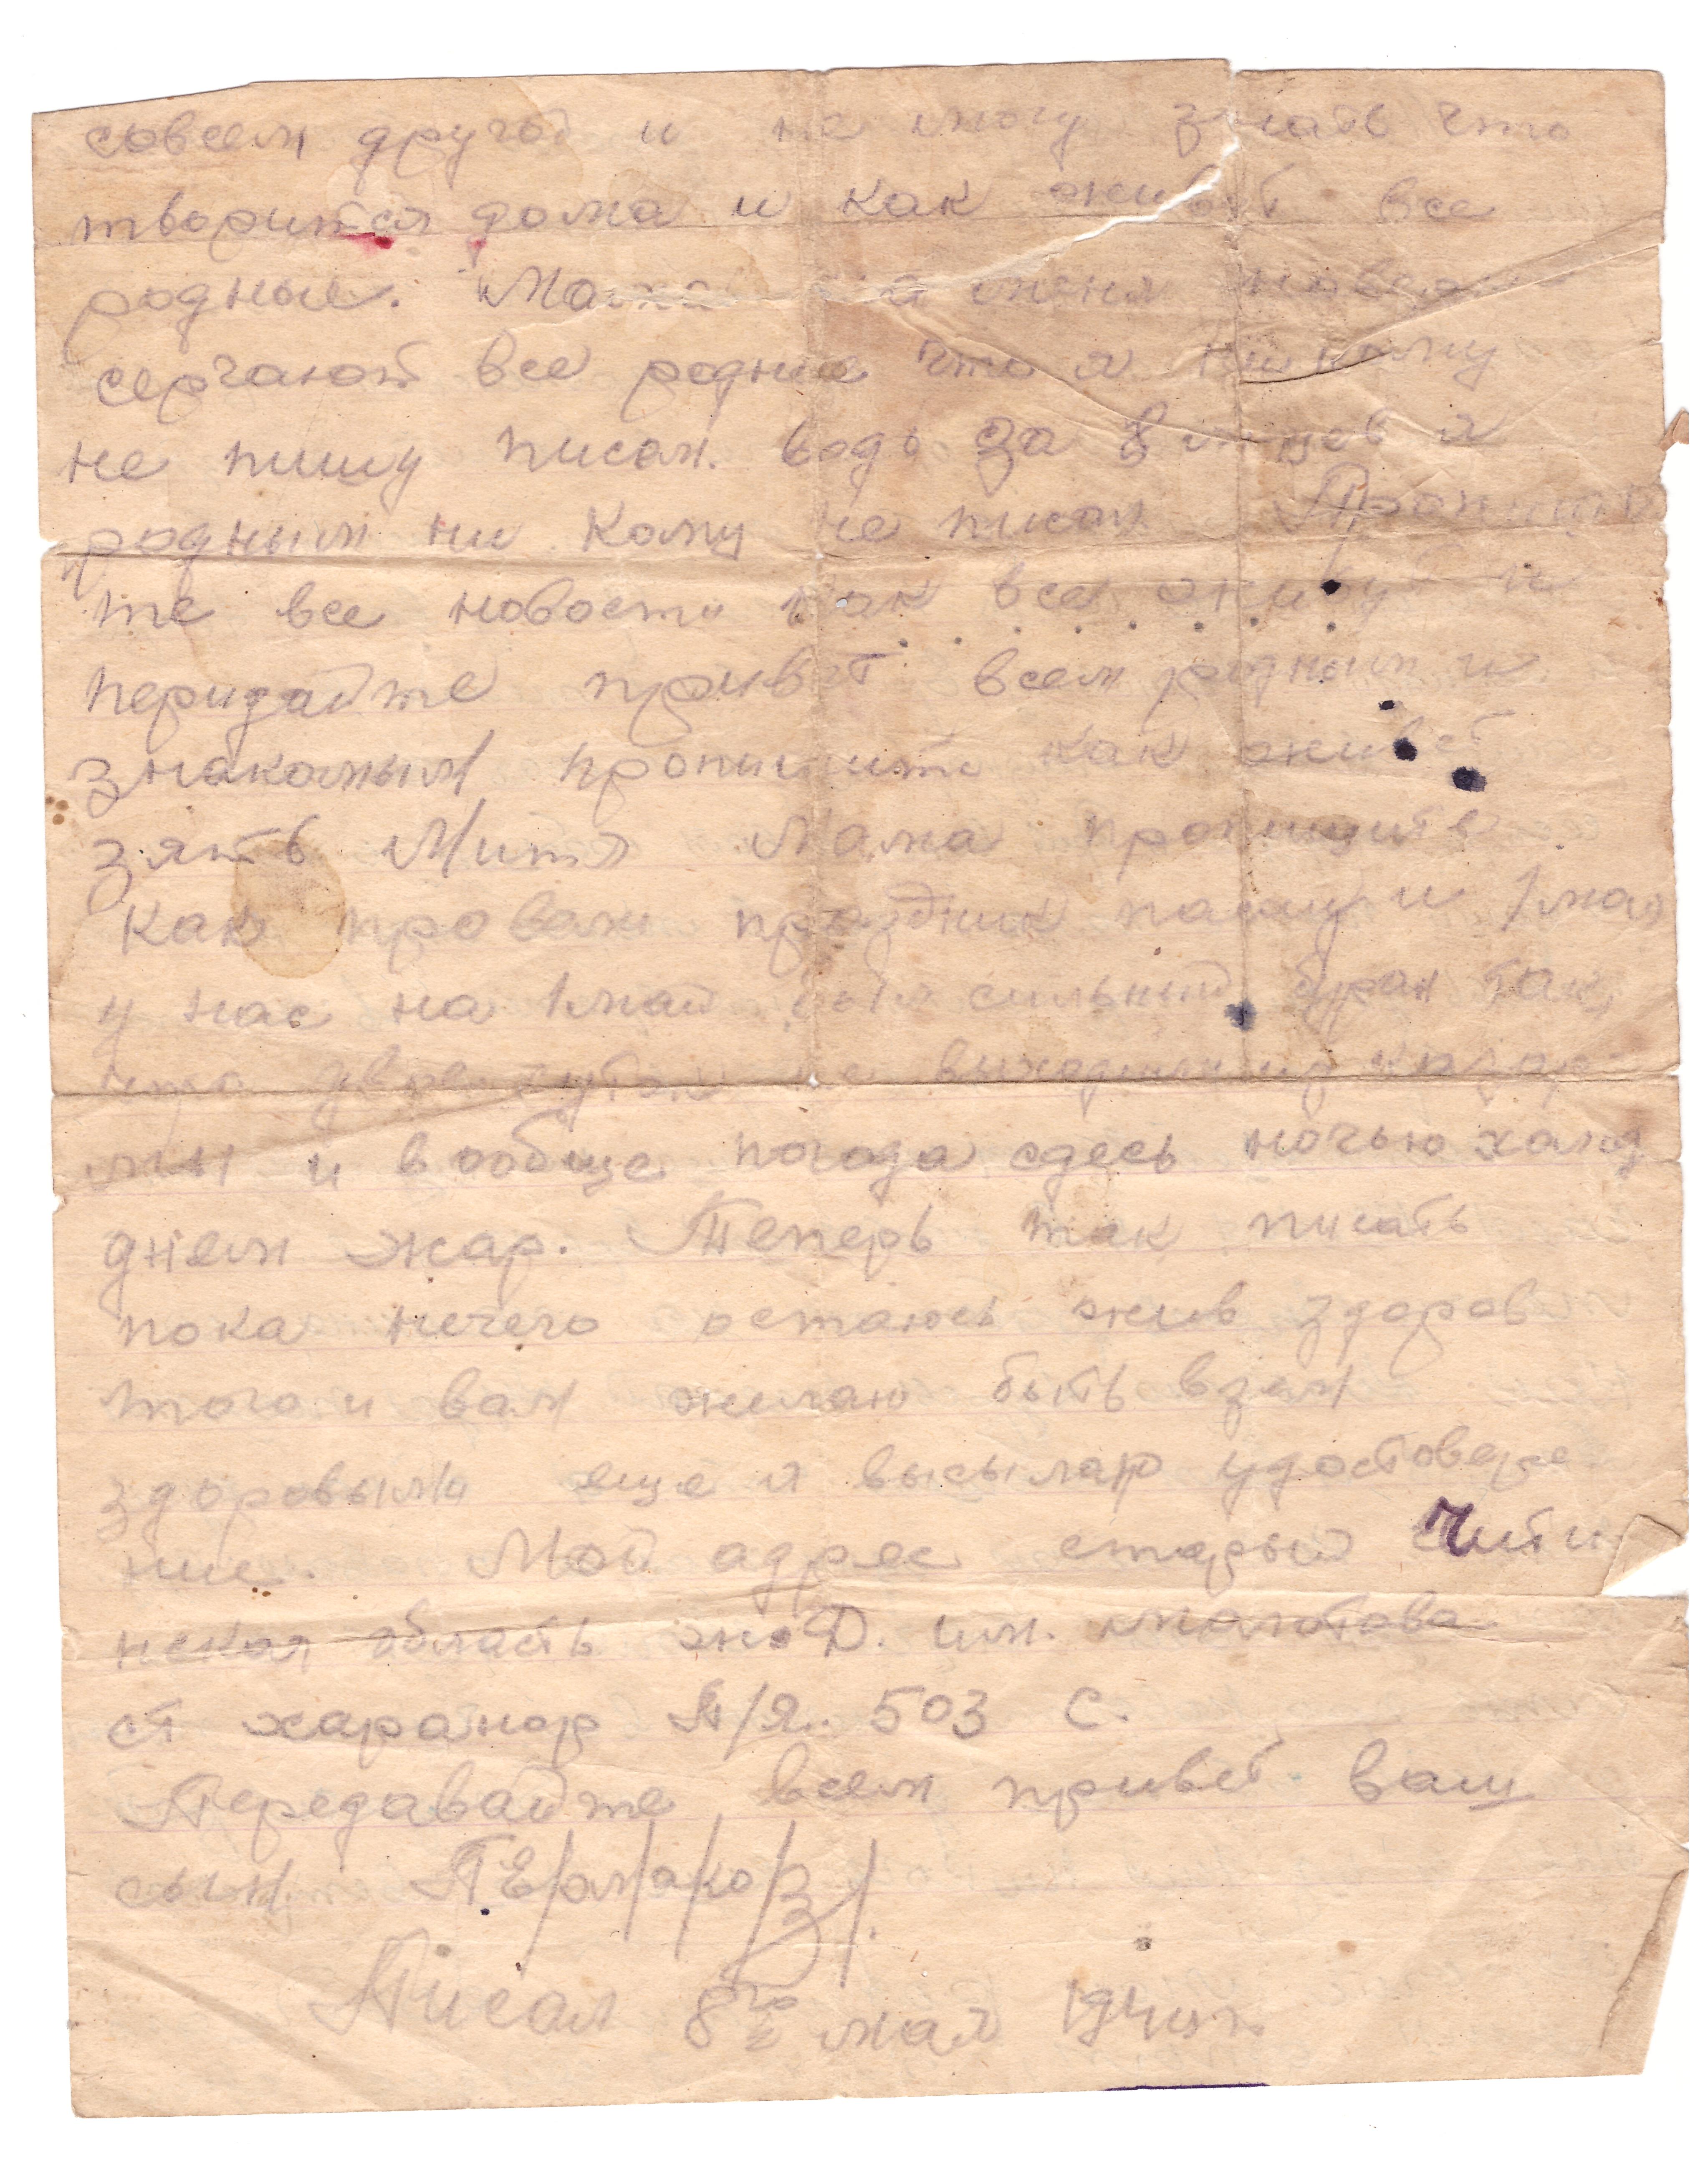 совсем другой и не могу знать что
творится дома и как живут все
родные. Мама на меня
серчают все родные что я никому
не пишу писем. ведь за 8 м-цев я
родным ни кому не писал Пропишите
те все новости как все живут и
перидайте привет всем родным и
знакомым пропишите как живет
зять Митя Мама пропишите
как провели праздник пасху и 1 мая
у нас на 1 май был сильный буран так
что двое суток не выходили из казар
мы и вообще погода сдесь ночью холод
днем жар. Теперь так писать
пока нечего остаюсь жив здоров
того и вам желаю быть взем
здоровыми еще я высылаю удостовере
ние. Мой адрес старый Чити
нская область ж.Д. им. молотова
ст харанор П/Я. 503 С.
Передавайте всем привет ваш
сын. П.Ермаков
Писал 8го мая